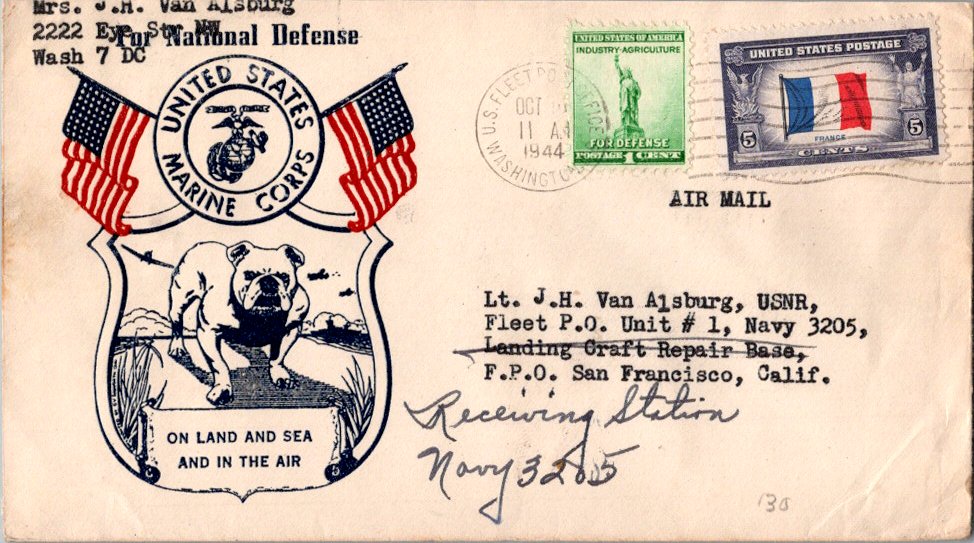 Mrs. J.H. Van Alsburg
2222 Eye Str NW
For National Defense
Wash 7 DC
UNITED STATES
MARINE CORPS
ON LAND AND SEA
AND IN THE AIR
U.S. FLEET POST OFFICE
OCT
11 AM
1944
WASHINGTON
UNITED STATES OF AMERICA
INDUSTRY-AGRICULTURE
FOR DEFENSE
POSTAGE 1 CENT
UNITED STATES POSTAGE
FRANCE
5 5
CENTS
AIR MAIL
Lt. J.H. Van Alsburg, USNR,
Fleet P.O. Unit # 1, Navy 3205,
Landing Craft Repair Base,
F.P.O. San Francisco, Calif.
Receiving Station
Navy 3205
130